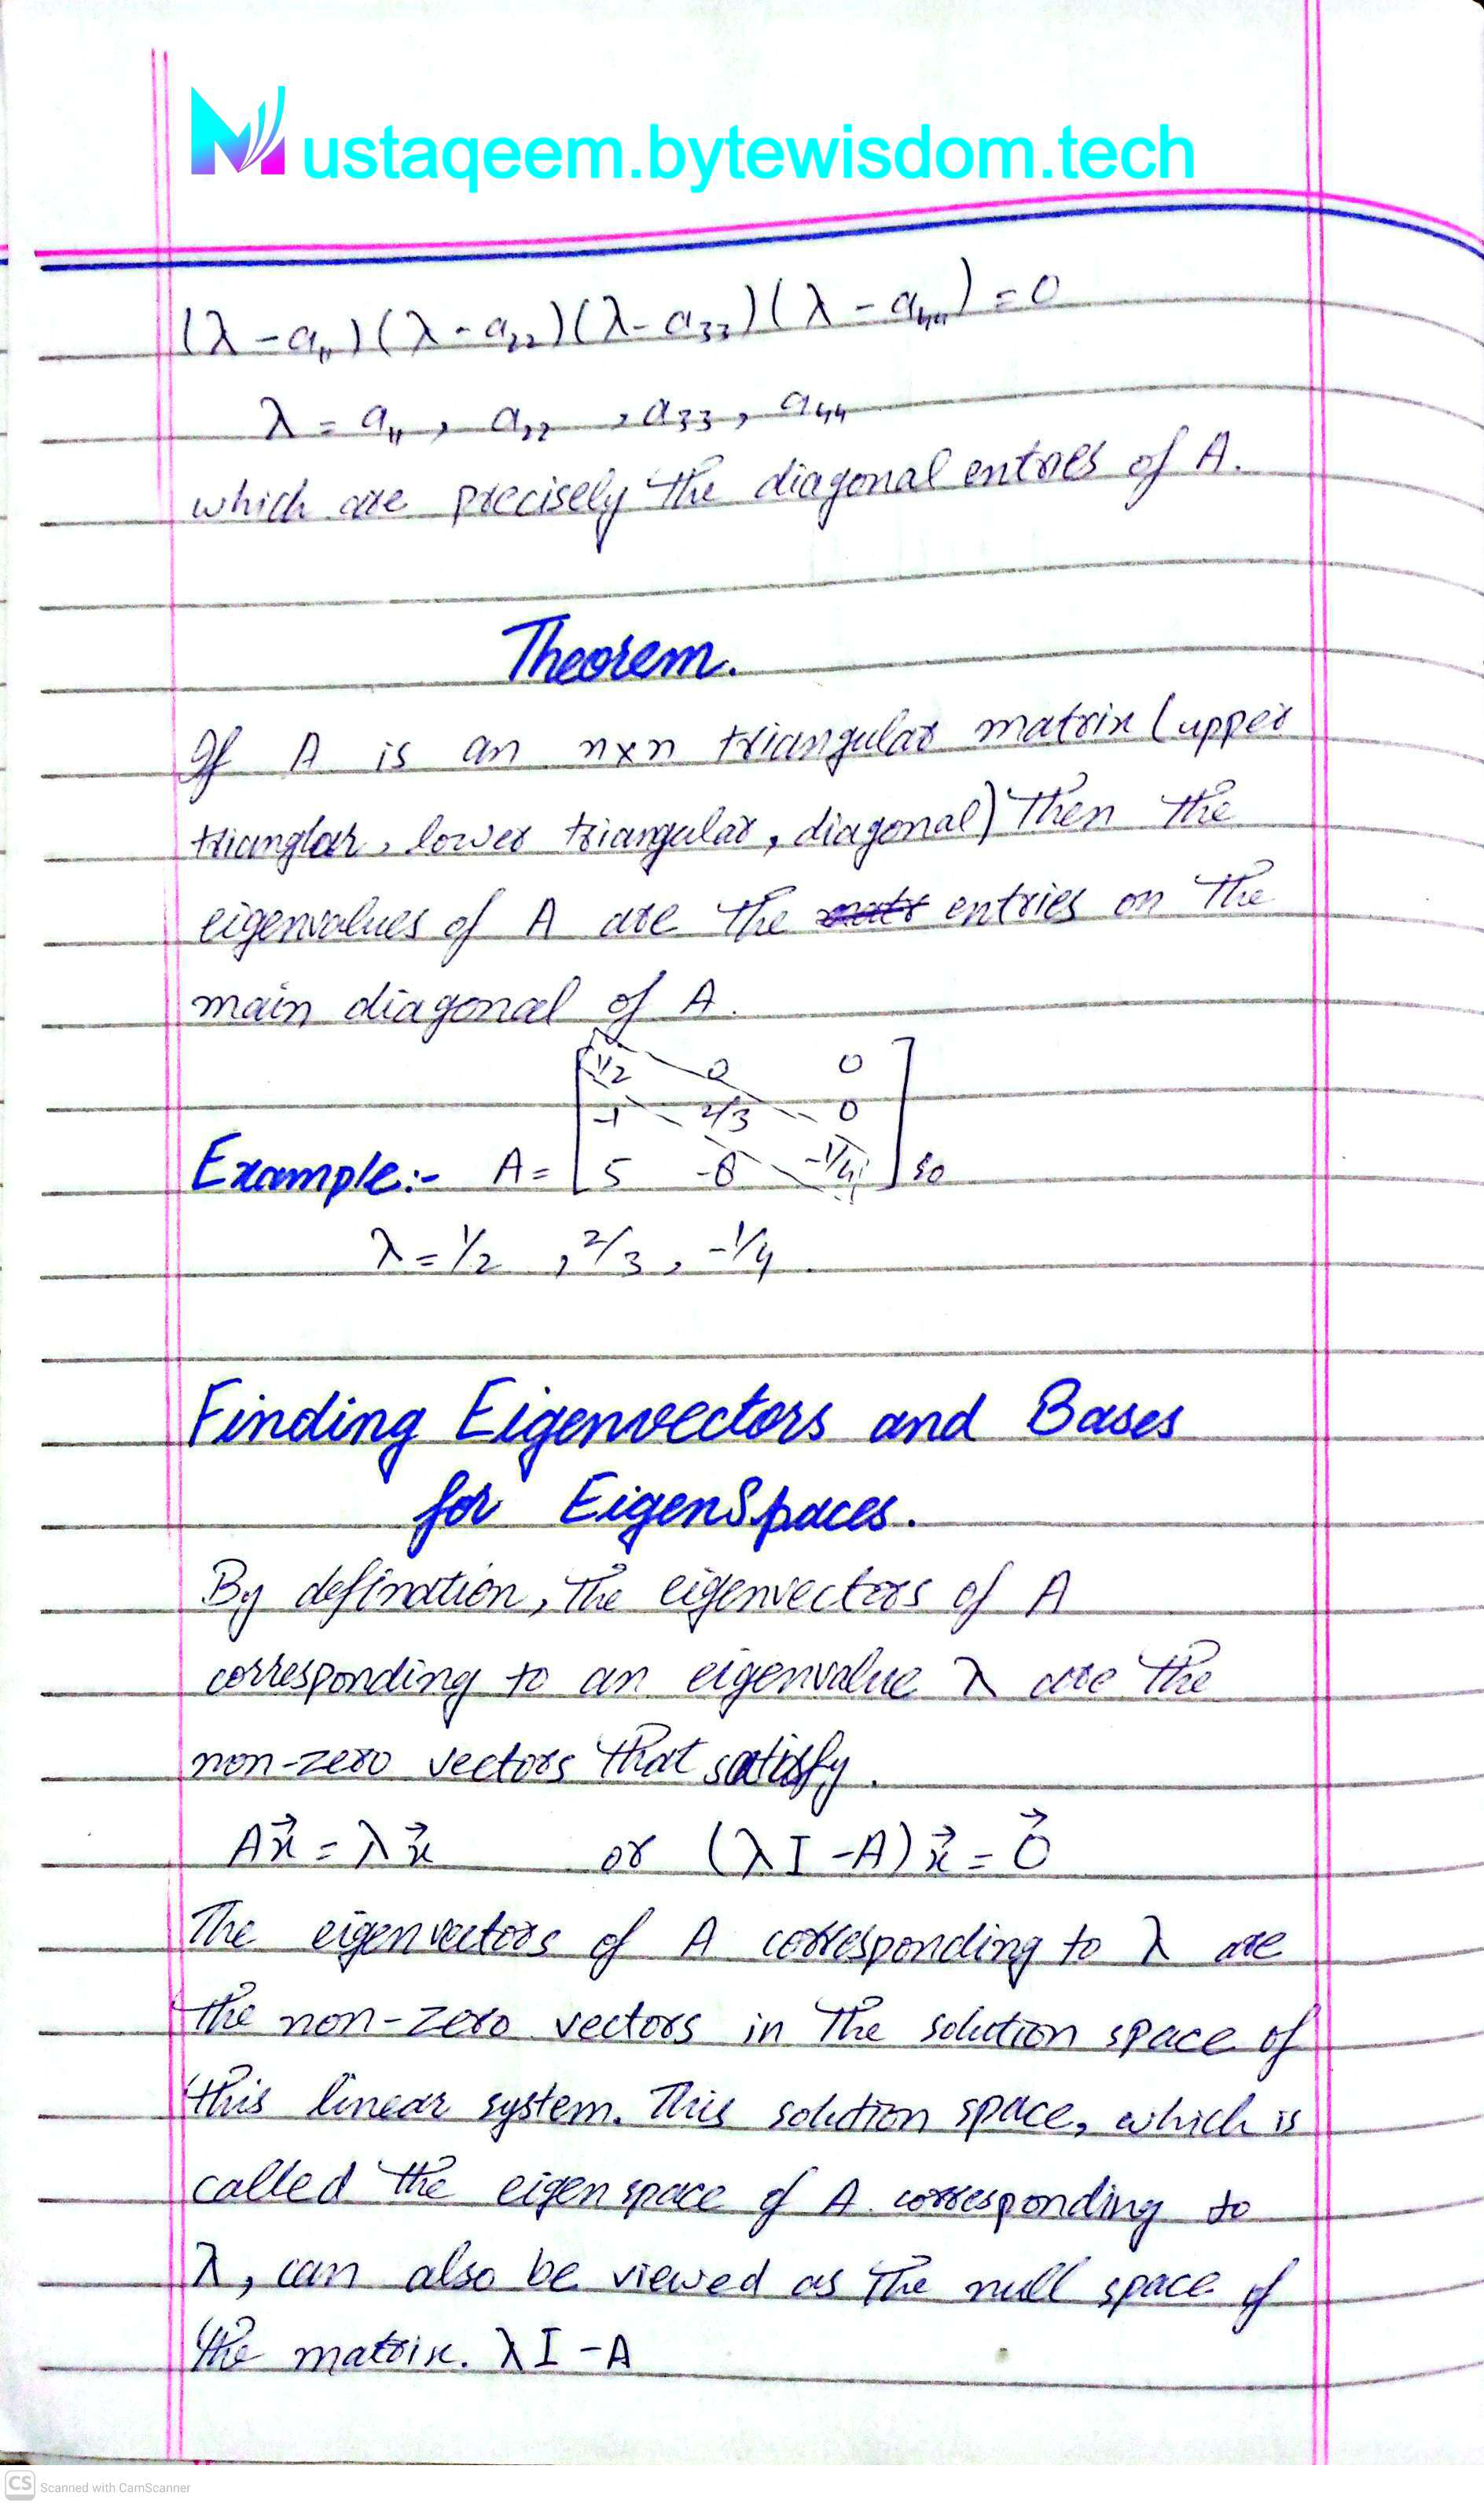 Mustaqeem.bytewisdom.tech
(λ - a₁₁)(λ - a₂₂)(λ - a₃₃)(λ - a₄₄) = 0
λ = a₁₁, a₂₂, a₃₃, a₄₄
which are precisely the diagonal entries of A.
Theorem.
If A is an n×n triangular matrix (upper
trianglar, lower triangular, diagonal) then the
eigenvalues of A are the entries on the
main diagonal of A.
1/2 0 0
-1 2/3 0
Example:- A = 5 -8 -1/4 so
λ = 1/2, 2/3, -1/4.
Finding Eigenvectors and Bases
for EigenSpaces.
By defination, the eigenvectors of A
corresponding to an eigenvalue λ are the
non-zero vectors that satisfy.
Ax⃗ = λx⃗ or (λI - A)x⃗ = 0⃗
The eigenvectors of A corresponding to λ are
the non-zero vectors in the solution space of
this linear system. This solution space, which is
called the eigen space of A corresponding to
λ, can also be viewed as the null space of
the matrix. λI - A
CS Scanned with CamScanner